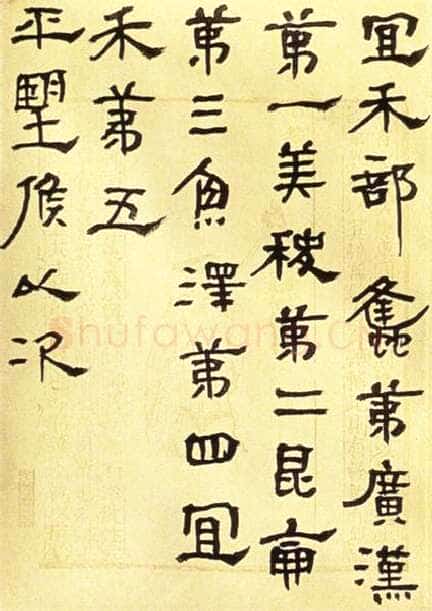 宜禾部蠭第廣漢
第一美稷第二昆侖
第三魚澤第四宜
禾第五
平朢候以次